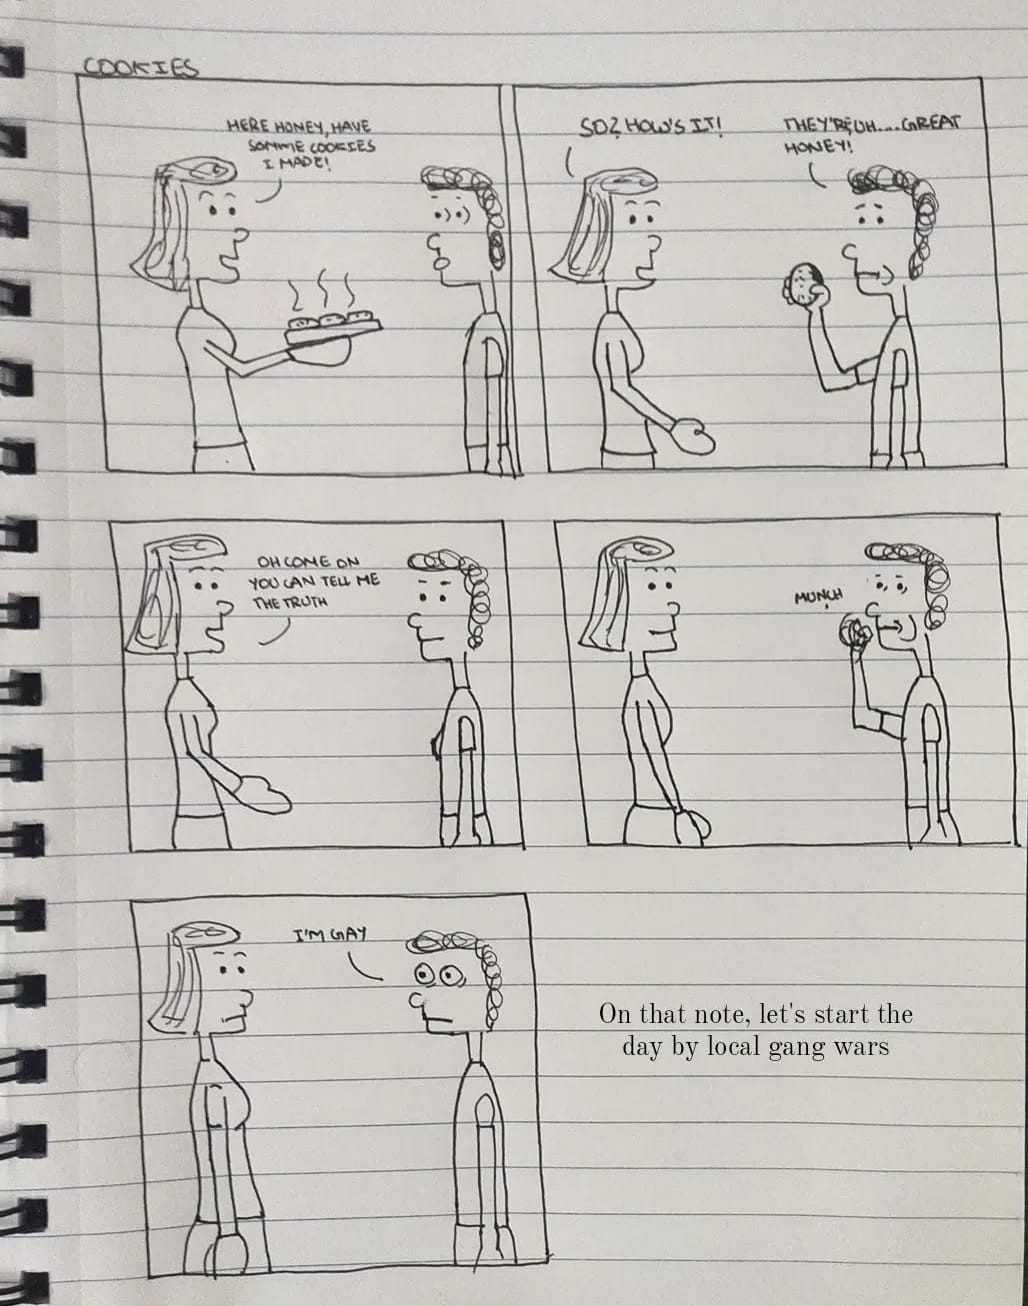 COOKIES
HERE HONEY, HAVE
SOMME COOKIES
I MADE!
SO? HOW'S IT!
THEY'RE,UH....GREAT
HONEY!
OH COME ON
YOU CAN TELL ME
THE TRUTH
MUNCH
I'M GAY
On that note, let's start the
day by local gang wars